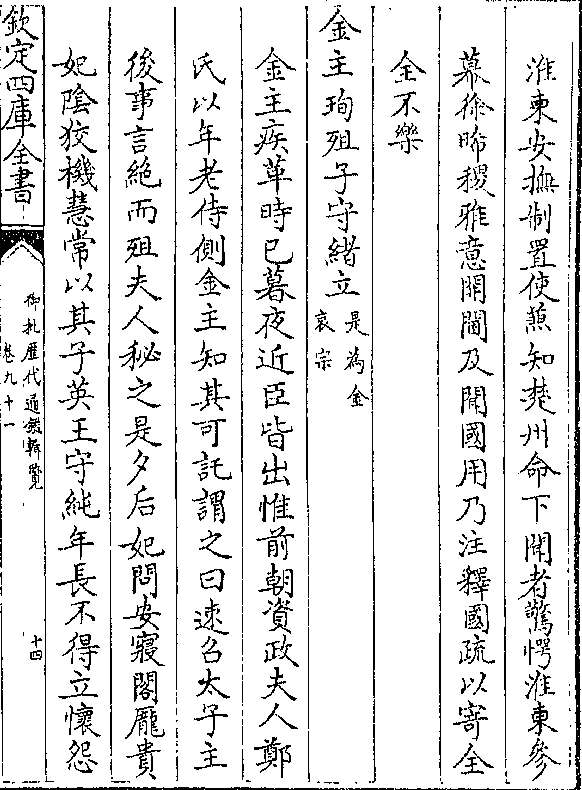 淮東安撫制置使兼知楚州命下聞者驚愕淮東參
幕徐晞稷雅意開閫及聞國用乃注釋國疏以寄全
全不樂
金主珣殂子守緒立是為金哀宗
金主疾革時已暮夜近臣皆出惟前朝資政夫人鄭
氏以年老侍側金主知其可託謂之曰速召太子主
後事言絶而殂夫人秘之是夕后妃問安寢閣龎貴
妃陰狡機慧常以其子英王守純年長不得立懷怨
欽定四庫全書
御批歷代通鑑輯覽
卷九十一
十四